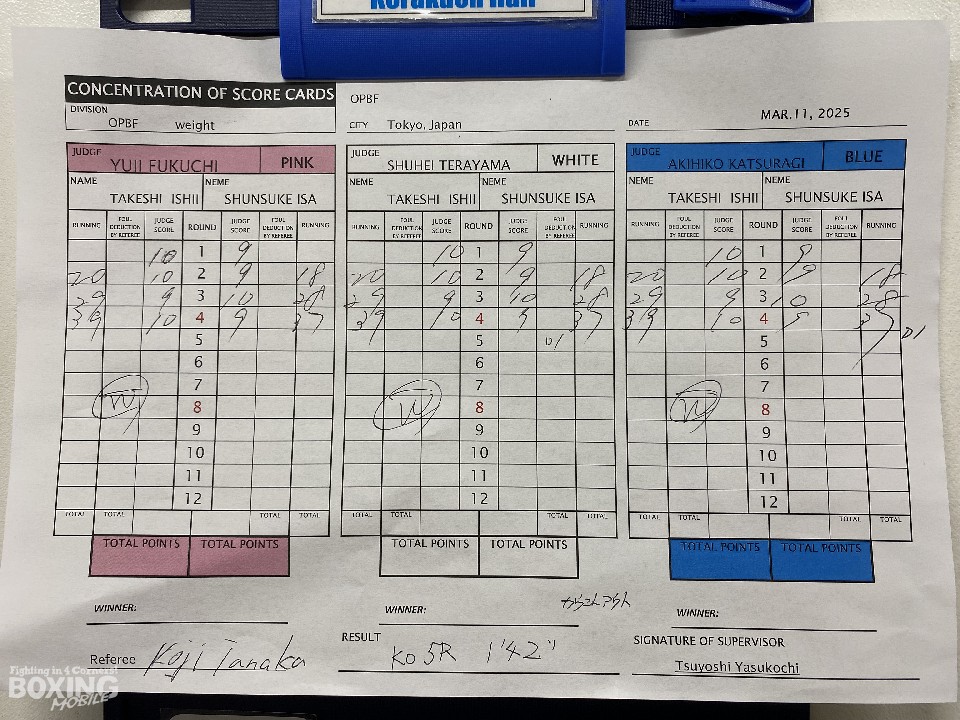 Korakuen Hall
CONCENTRATION OF SCORE CARDS
OPBF
DIVISION
OPBF weight
CITY Tokyo, Japan
DATE MAR.11, 2025
JUDGE YUJI FUKUCHI PINK
JUDGE SHUHEI TERAYAMA WHITE
JUDGE AKIHIKO KATSURAGI BLUE
NAME NEME NEME NEME NEME NEME
TAKESHI ISHII SHUNSUKE ISA TAKESHI ISHII SHUNSUKE ISA TAKESHI ISHII SHUNSUKE ISA
RUNNING FOUL DEDUCTION BY REFEREE JUDGE SCORE ROUND JUDGE SCORE FOUL DEDUCTION BY REFEREE RUNNING
RUNNING FOUL DEDUCTION BY REFEREE JUDGE SCORE ROUND JUDGE SCORE FOUL DEDUCTION BY REFEREE RUNNING
RUNNING FOUL DEDUCTION BY REFEREE JUDGE SCORE ROUND JUDGE SCORE FOUL DEDUCTION BY REFEREE RUNNING
10 1 9 10 1 9 10 1 9
20 10 2 9 18 20 10 2 9 18 20 10 2 9 18
29 9 3 10 28 29 9 3 10 28 29 9 3 10 28
39 10 4 9 37 39 10 4 9 37 39 10 4 9 37
5 5 D1 5 D1
6 6 6
7 7 7
W 8 W 8 W 8
9 9 9
10 10 10
11 11 11
12 12 12
TOTAL TOTAL TOTAL TOTAL TOTAL TOTAL TOTAL TOTAL TOTAL TOTAL TOTAL TOTAL
TOTAL POINTS TOTAL POINTS TOTAL POINTS TOTAL POINTS TOTAL POINTS TOTAL POINTS
WINNER: WINNER: WINNER:
Referee Koji Tanaka
RESULT KO 5R 1'42"
SIGNATURE OF SUPERVISOR
Tsuyoshi Yasukochi
Fighting in 4 Corners!
BOXING
MOBILE